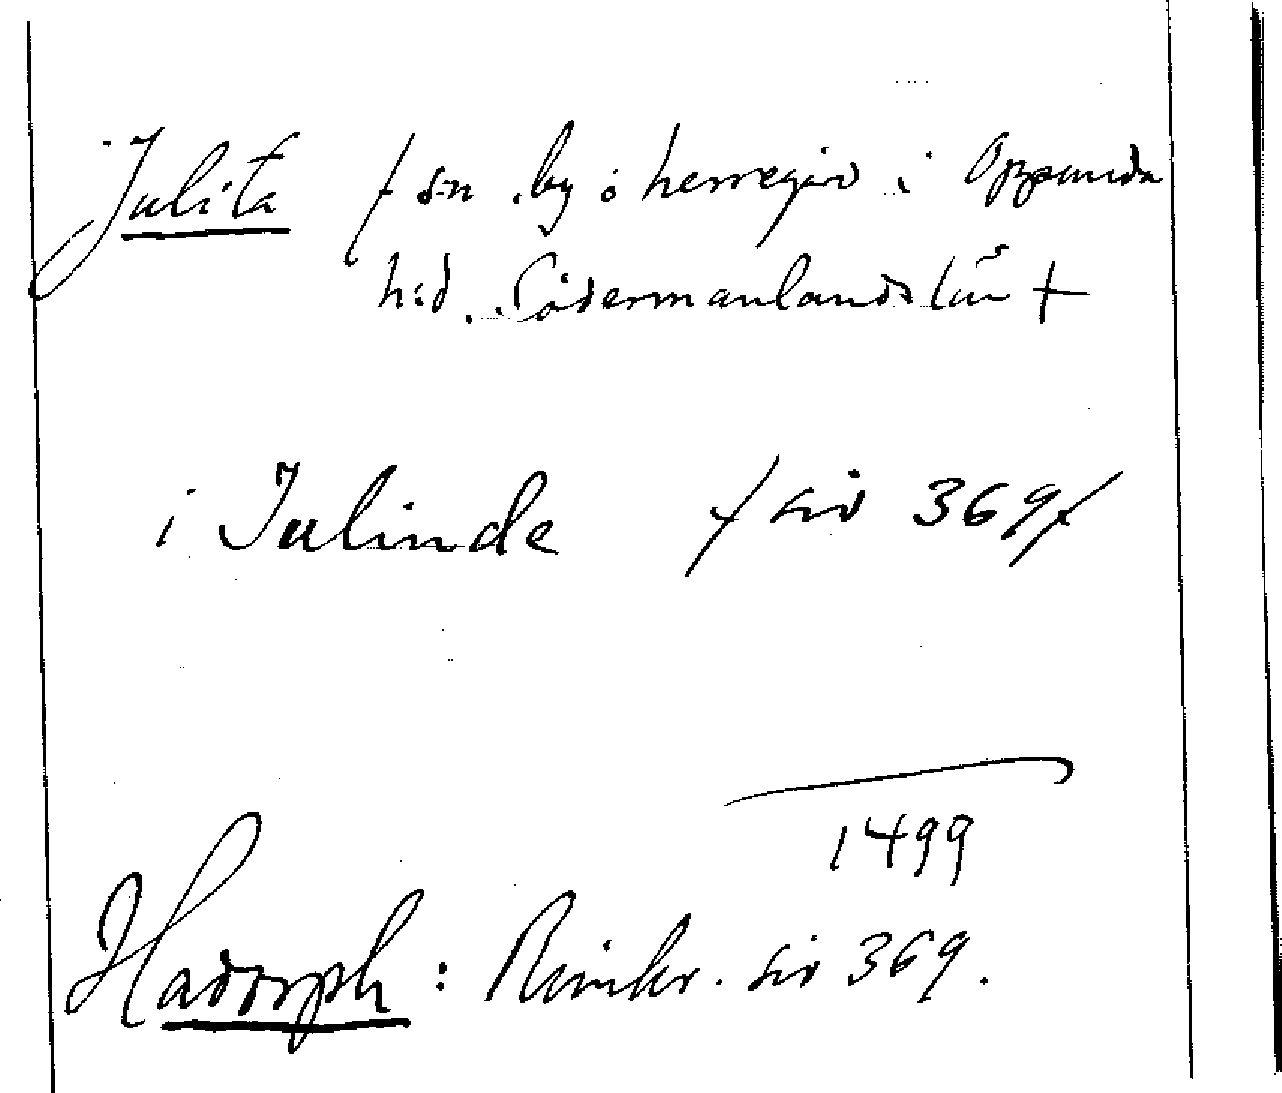 Julita / s:n by o herregård i Oppunda
h:d. Södermanlands län +
i Julinde / sid 369/
1499
Hadorph: Rimkr. sid 369.